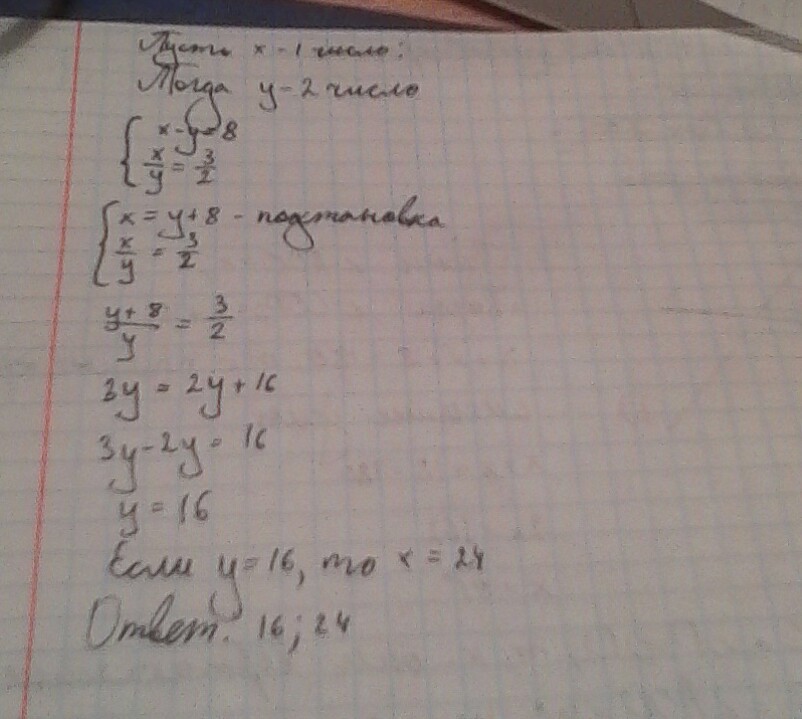 Пусть x - 1 число:
Тогда y - 2 число
{ x - y = 8
x/y = 3/2
{ x = y + 8 - подстановка
x/y = 3/2
y + 8 / y = 3/2
3y = 2y + 16
3y - 2y = 16
y = 16
Если y = 16, то x = 24
Ответ: 16; 24